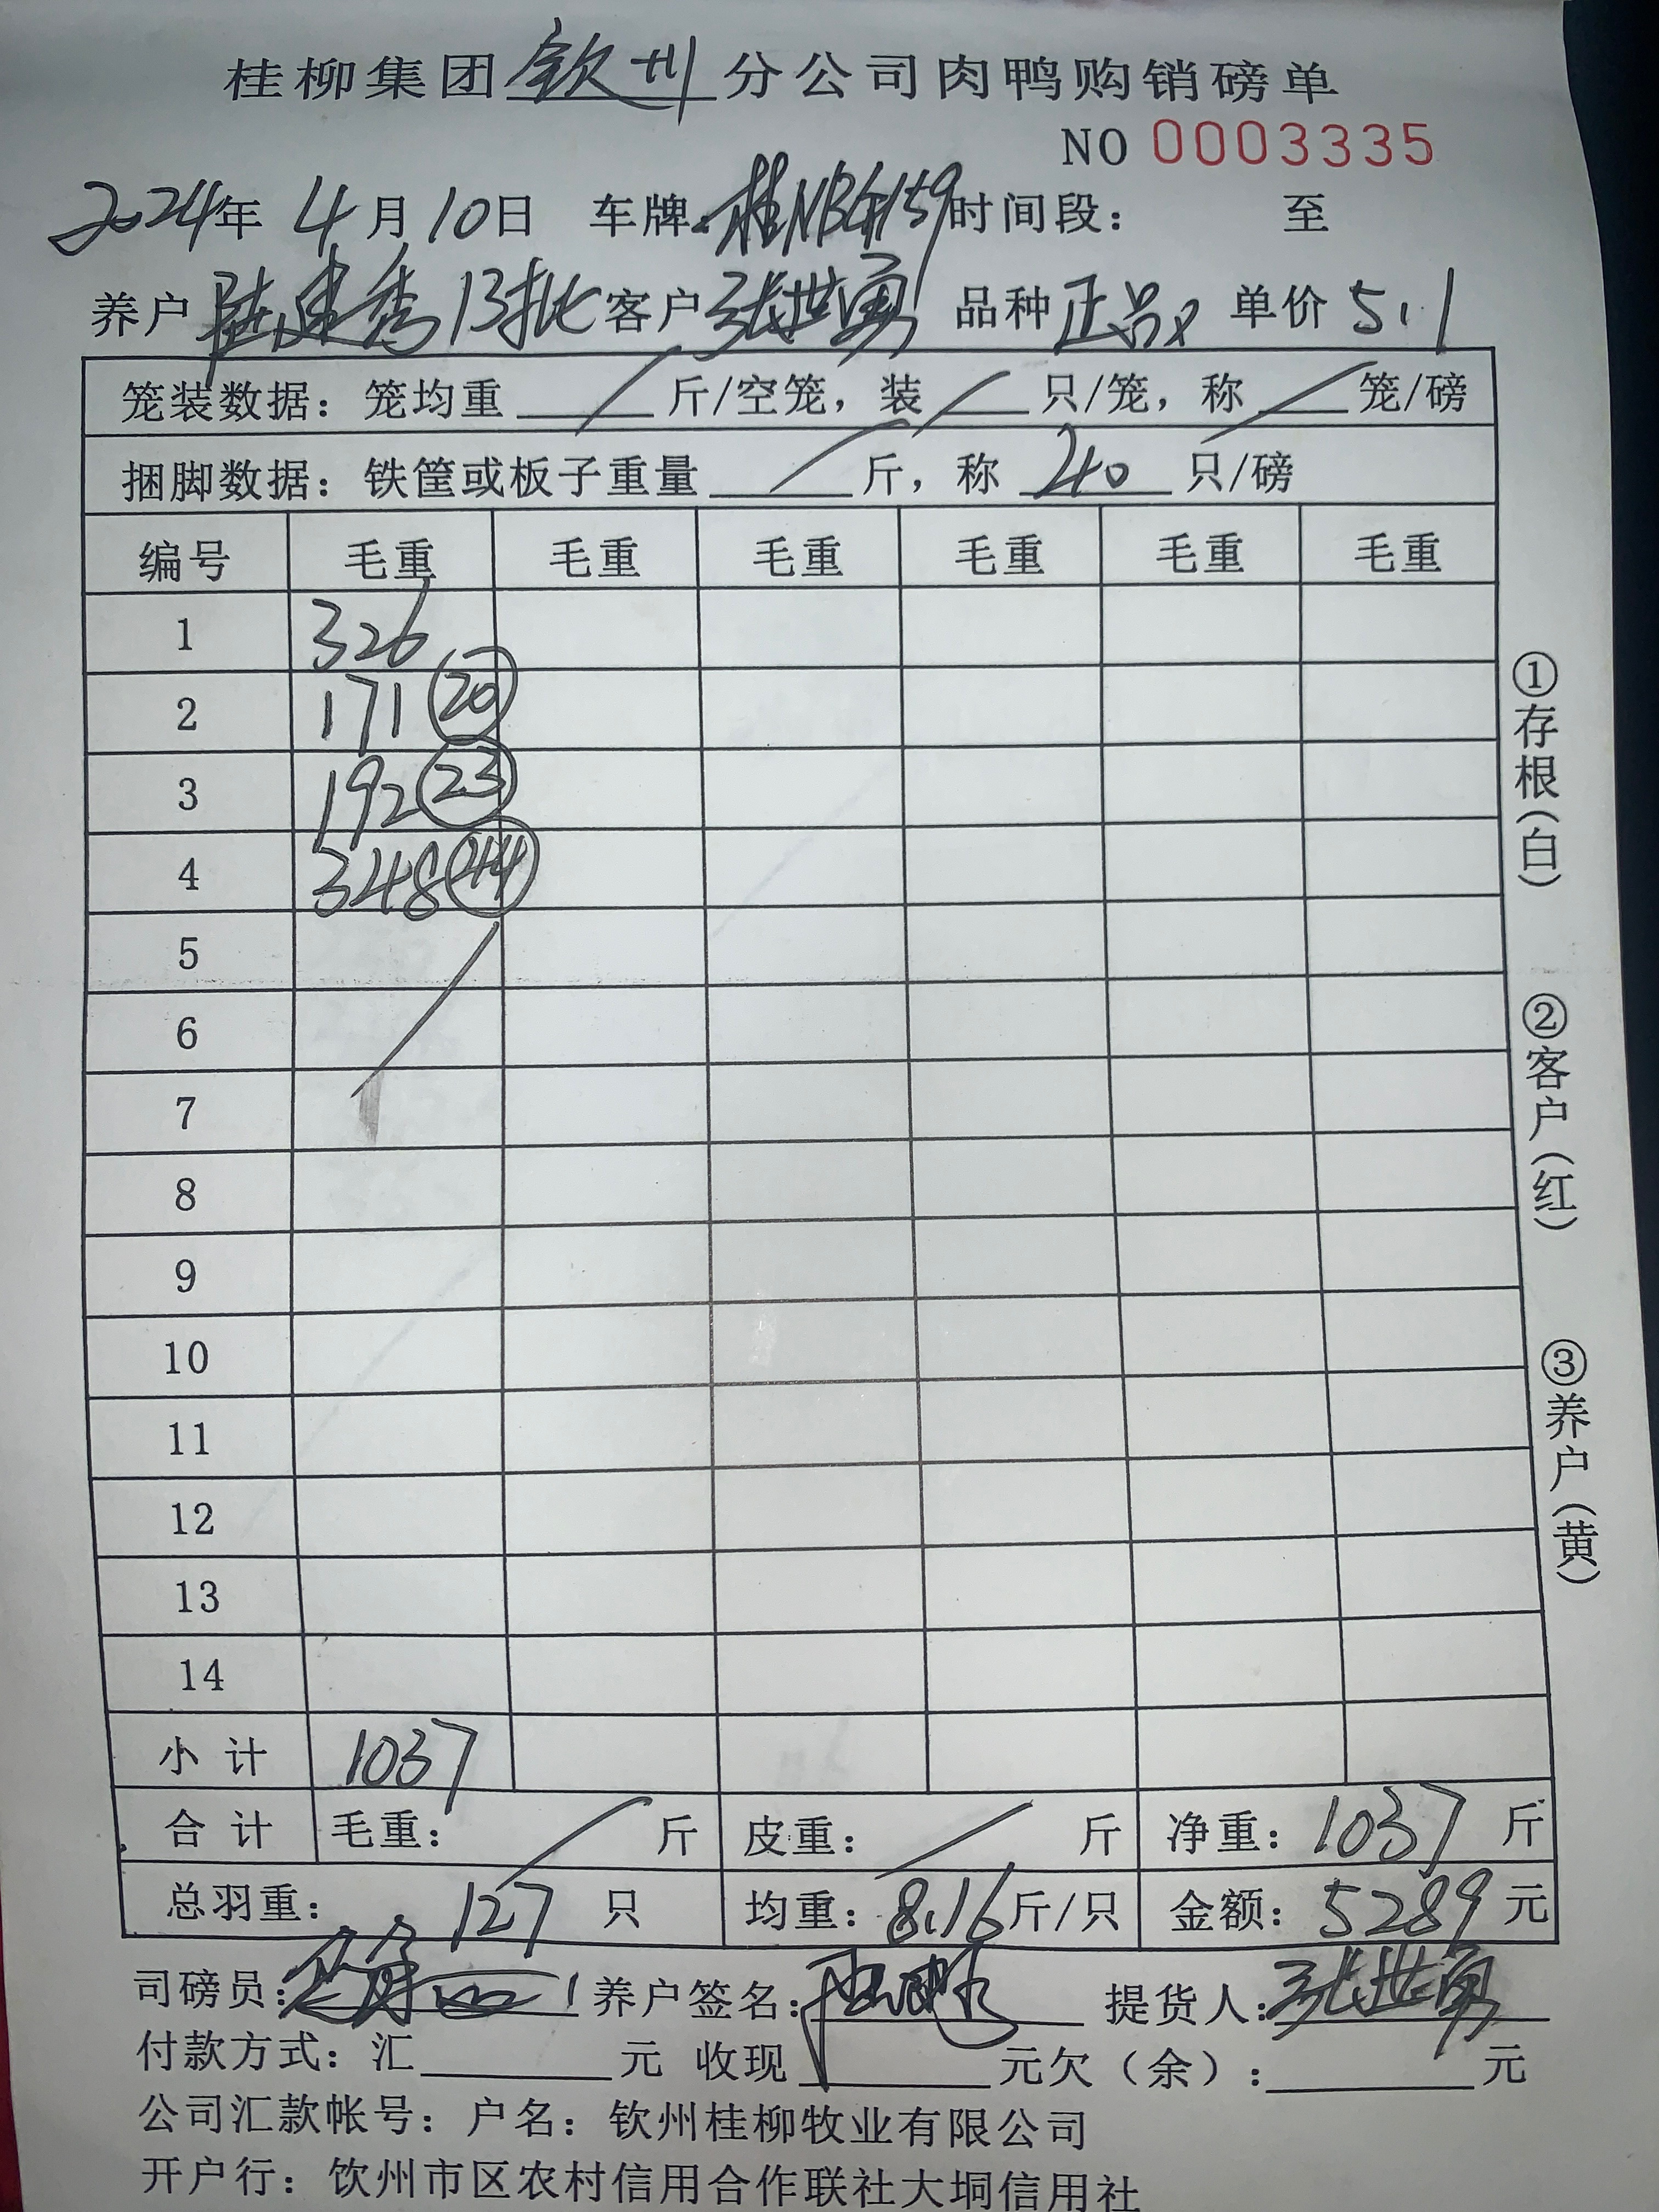 桂柳集团钦州分公司肉鸭购销磅单
NO 0003335
2024年 4月10日 车牌: 桂NB 159 时间段: 至
养户 陆建秀 13批 客户 张世勇 品种 正品 单价 5.1
笼装数据: 笼均重 斤/空笼, 装 只/笼, 称 笼/磅
捆脚数据: 铁筐或板子重量 斤, 称 40 只/磅
编号 毛重 毛重 毛重 毛重 毛重 毛重
1 326
2 171 20
3 192 23
4 348 44
5
6
7
8
9
10
11
12
13
14
小计 1037
合计 毛重: 斤 皮重: 斤 净重: 1037 斤
总羽重: 127 只 均重: 8.16 斤/只 金额: 5289 元
司磅员: 养户签名: 提货人: 张世勇
付款方式: 汇 元 收现 元欠(余): 元
公司汇款帐号: 户名: 钦州桂柳牧业有限公司
开户行: 钦州市区农村信用合作联社大垌信用社
①存根(白)
②客户(红)
③养户(黄)